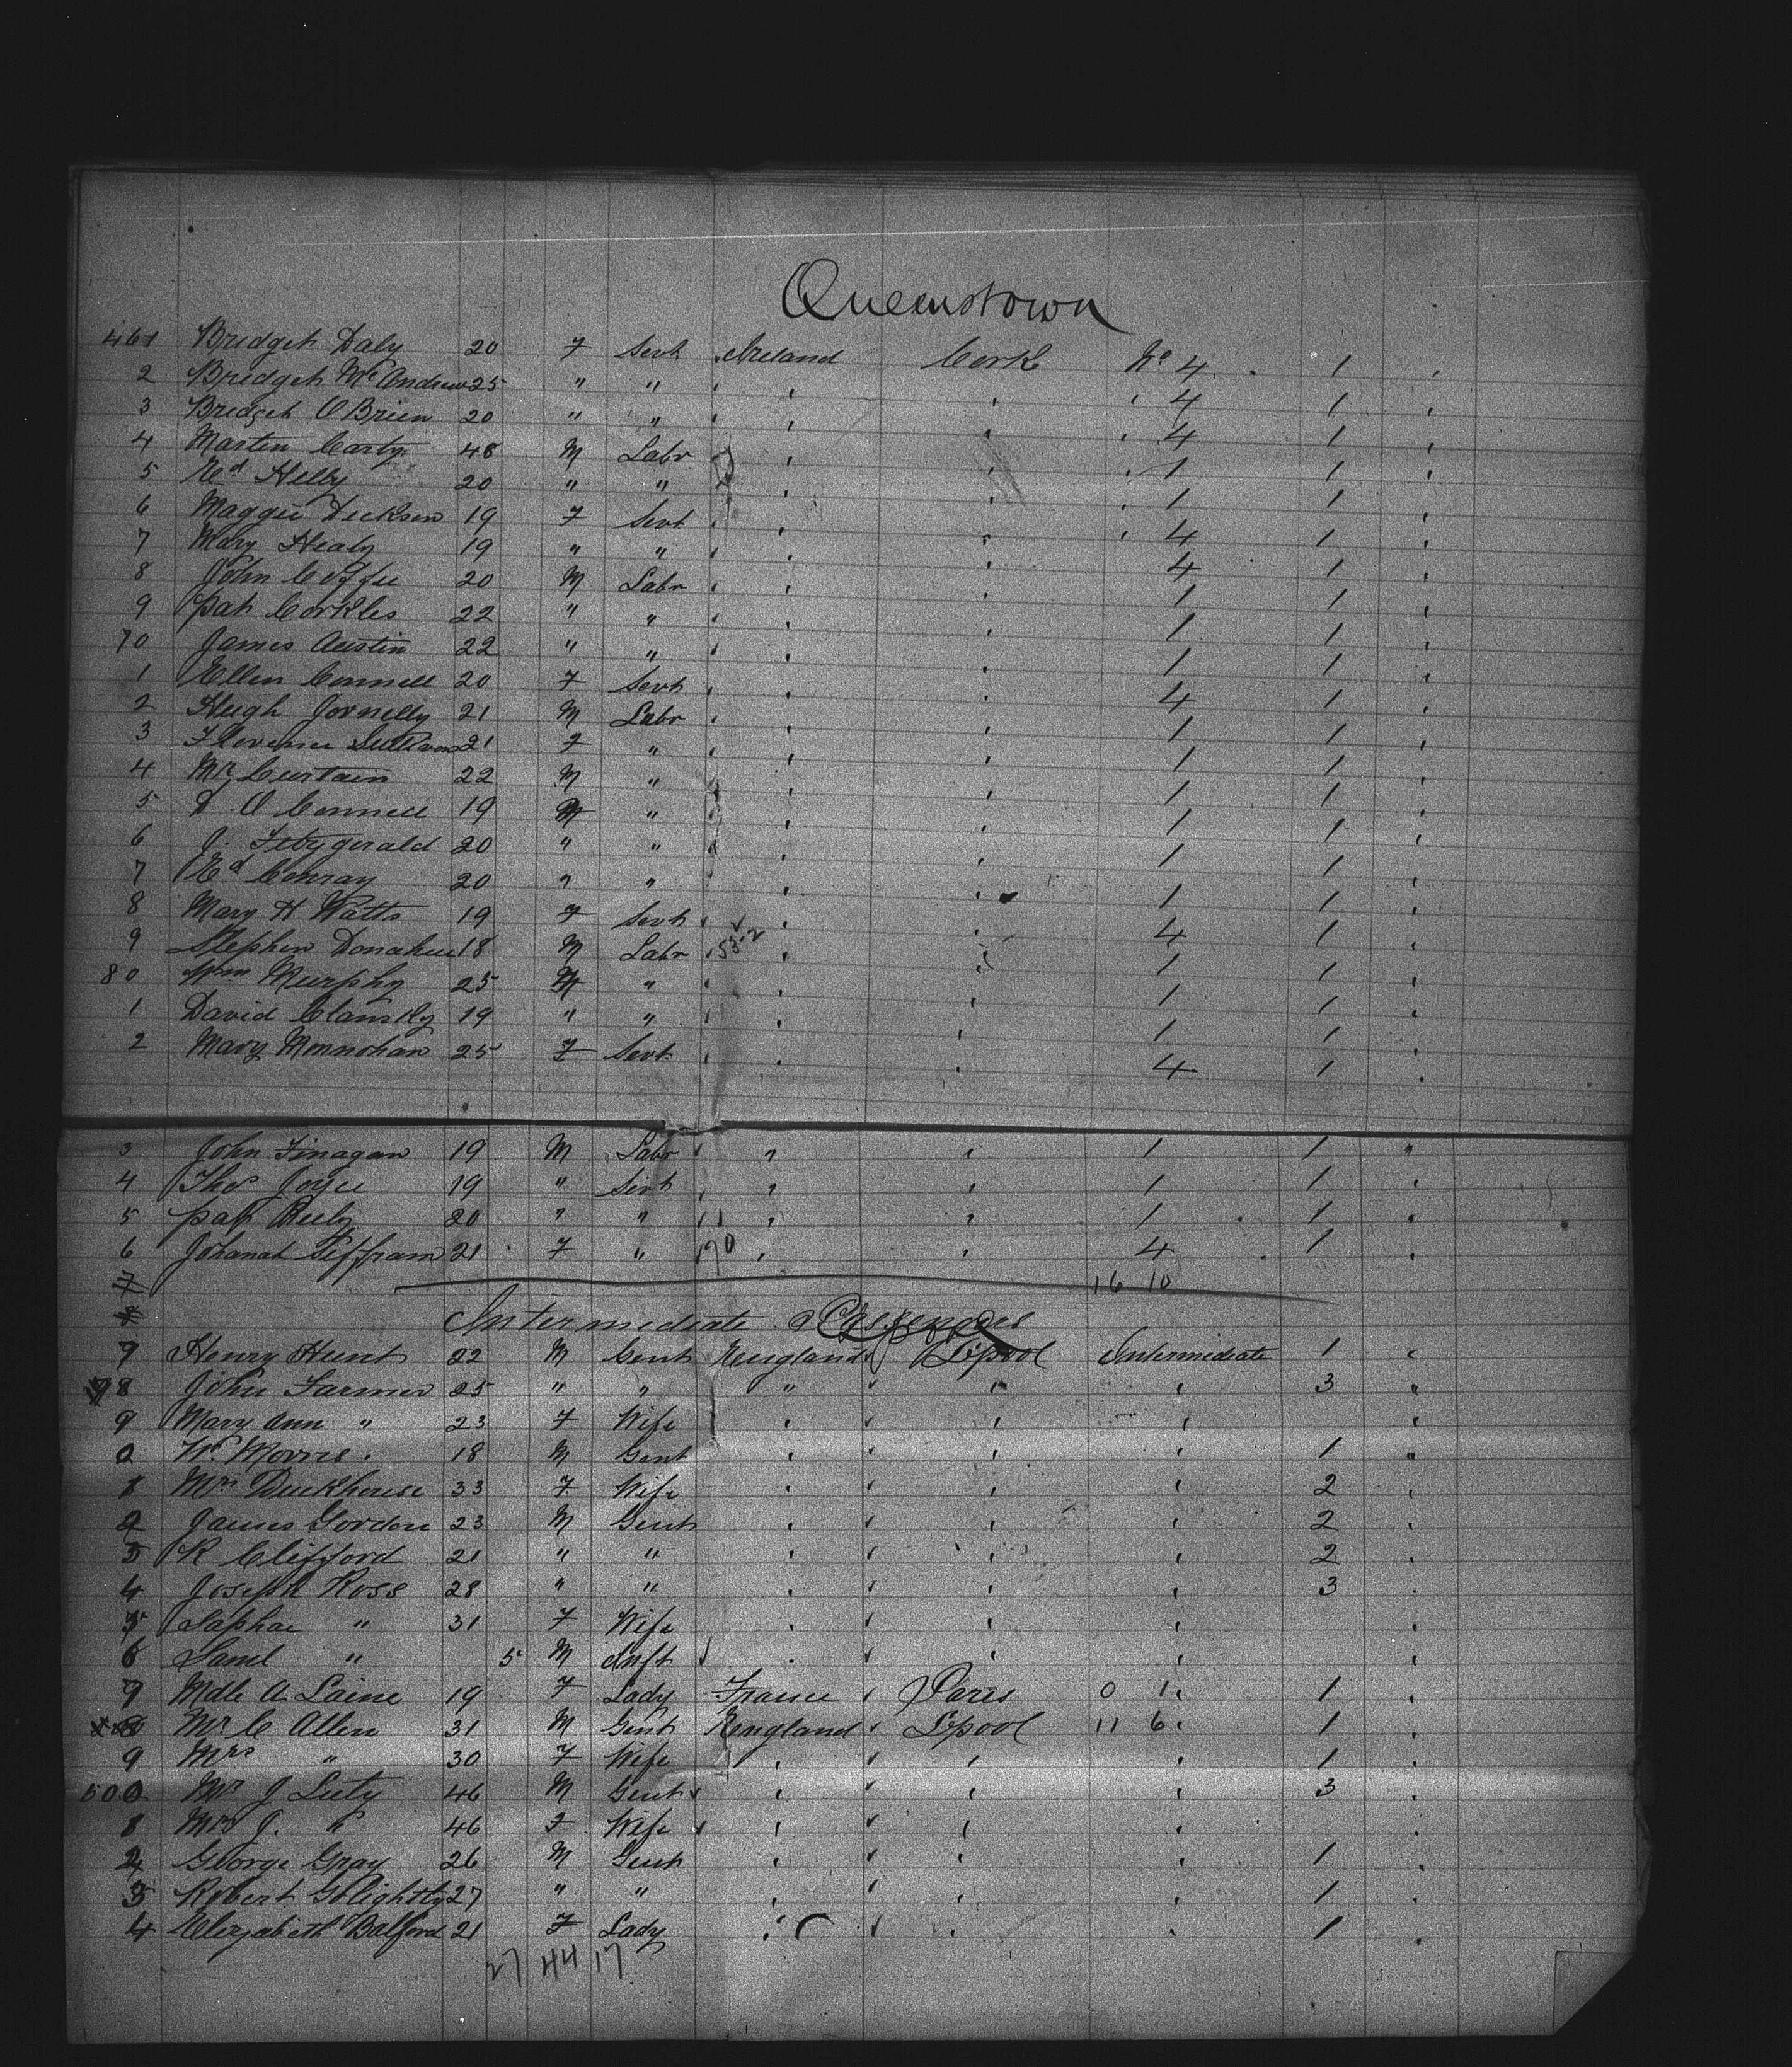 Queenstown
461 Bridget Daly 20 F Servt Ireland Cork No 4 1
2 Bridget McAndrew 25 " " 4 1
3 Bridget O Brien 20 " " 4 1
4 Martin Carty 48 M Labr 1 1
5 Ed 20 " " 1 1
6 Maggie Dickson 19 F Servt 4 1
7 Mary Healy 19 " " 4 1
8 John Coffee 20 M Labr 1 1
9 Pat Corkles 22 " " 1 1
70 James Austin 22 " " 1 1
1 Ellen Connell 20 F Servt 4 1
2 Hugh 21 M Labr 1 1
3 Sullivan 21 F " 1 1
4 Curtain 22 M " 1 1
5 O Connell 19 M " 1 1
6 J. Fitzgerald 20 " " 1 1
7 Ed Conray 20 " " 1 1
8 Mary H Watts 19 F Servt 4 1
9 Stephen Donahue 18 M Labr 53.2 1 1
80 Wm Murphy 25 M " 1 1
1 David 19 " " 1 1
2 Mary Monnohan 25 F Servt 4 1
3 John Finagan 19 M Labr " 1 1 "
4 Thos Joyce 19 " Servt 1 1
5 Pat 20 " " 1 1
6 Johanah 21 F " 4 1
7 16 10
Intermediate Passengers
9 Henry Hunt 22 M Gent England Lpool Intermediate 1
8 John Farmer 25 " " " 3 "
9 Mary Ann " 23 F Wife
0 Wm Morris 18 M Gent 1 "
1 Mrs Duckhouse 33 F Wife 2
2 James Gordon 23 M Gent 2
3 R Clifford 21 " " 2
4 Joseph Ross 28 " " 3
5 Saphae " 31 F Wife
6 Saml " 5 M Inft
7 Mdle A Laine 19 F Lady France Paris 0 1 1
8 Mr C Allen 31 M Gent England Lpool 11 6 1
9 Mrs " 30 F Wife 1
500 Mr J Luty 46 M Gent 3
1 Mrs J. " 46 F Wife
2 George Gray 26 M Gent 1
3 Robert Golightly 27 " " 1
4 Elizabeth Balford 21 F Lady 1
27 44 17